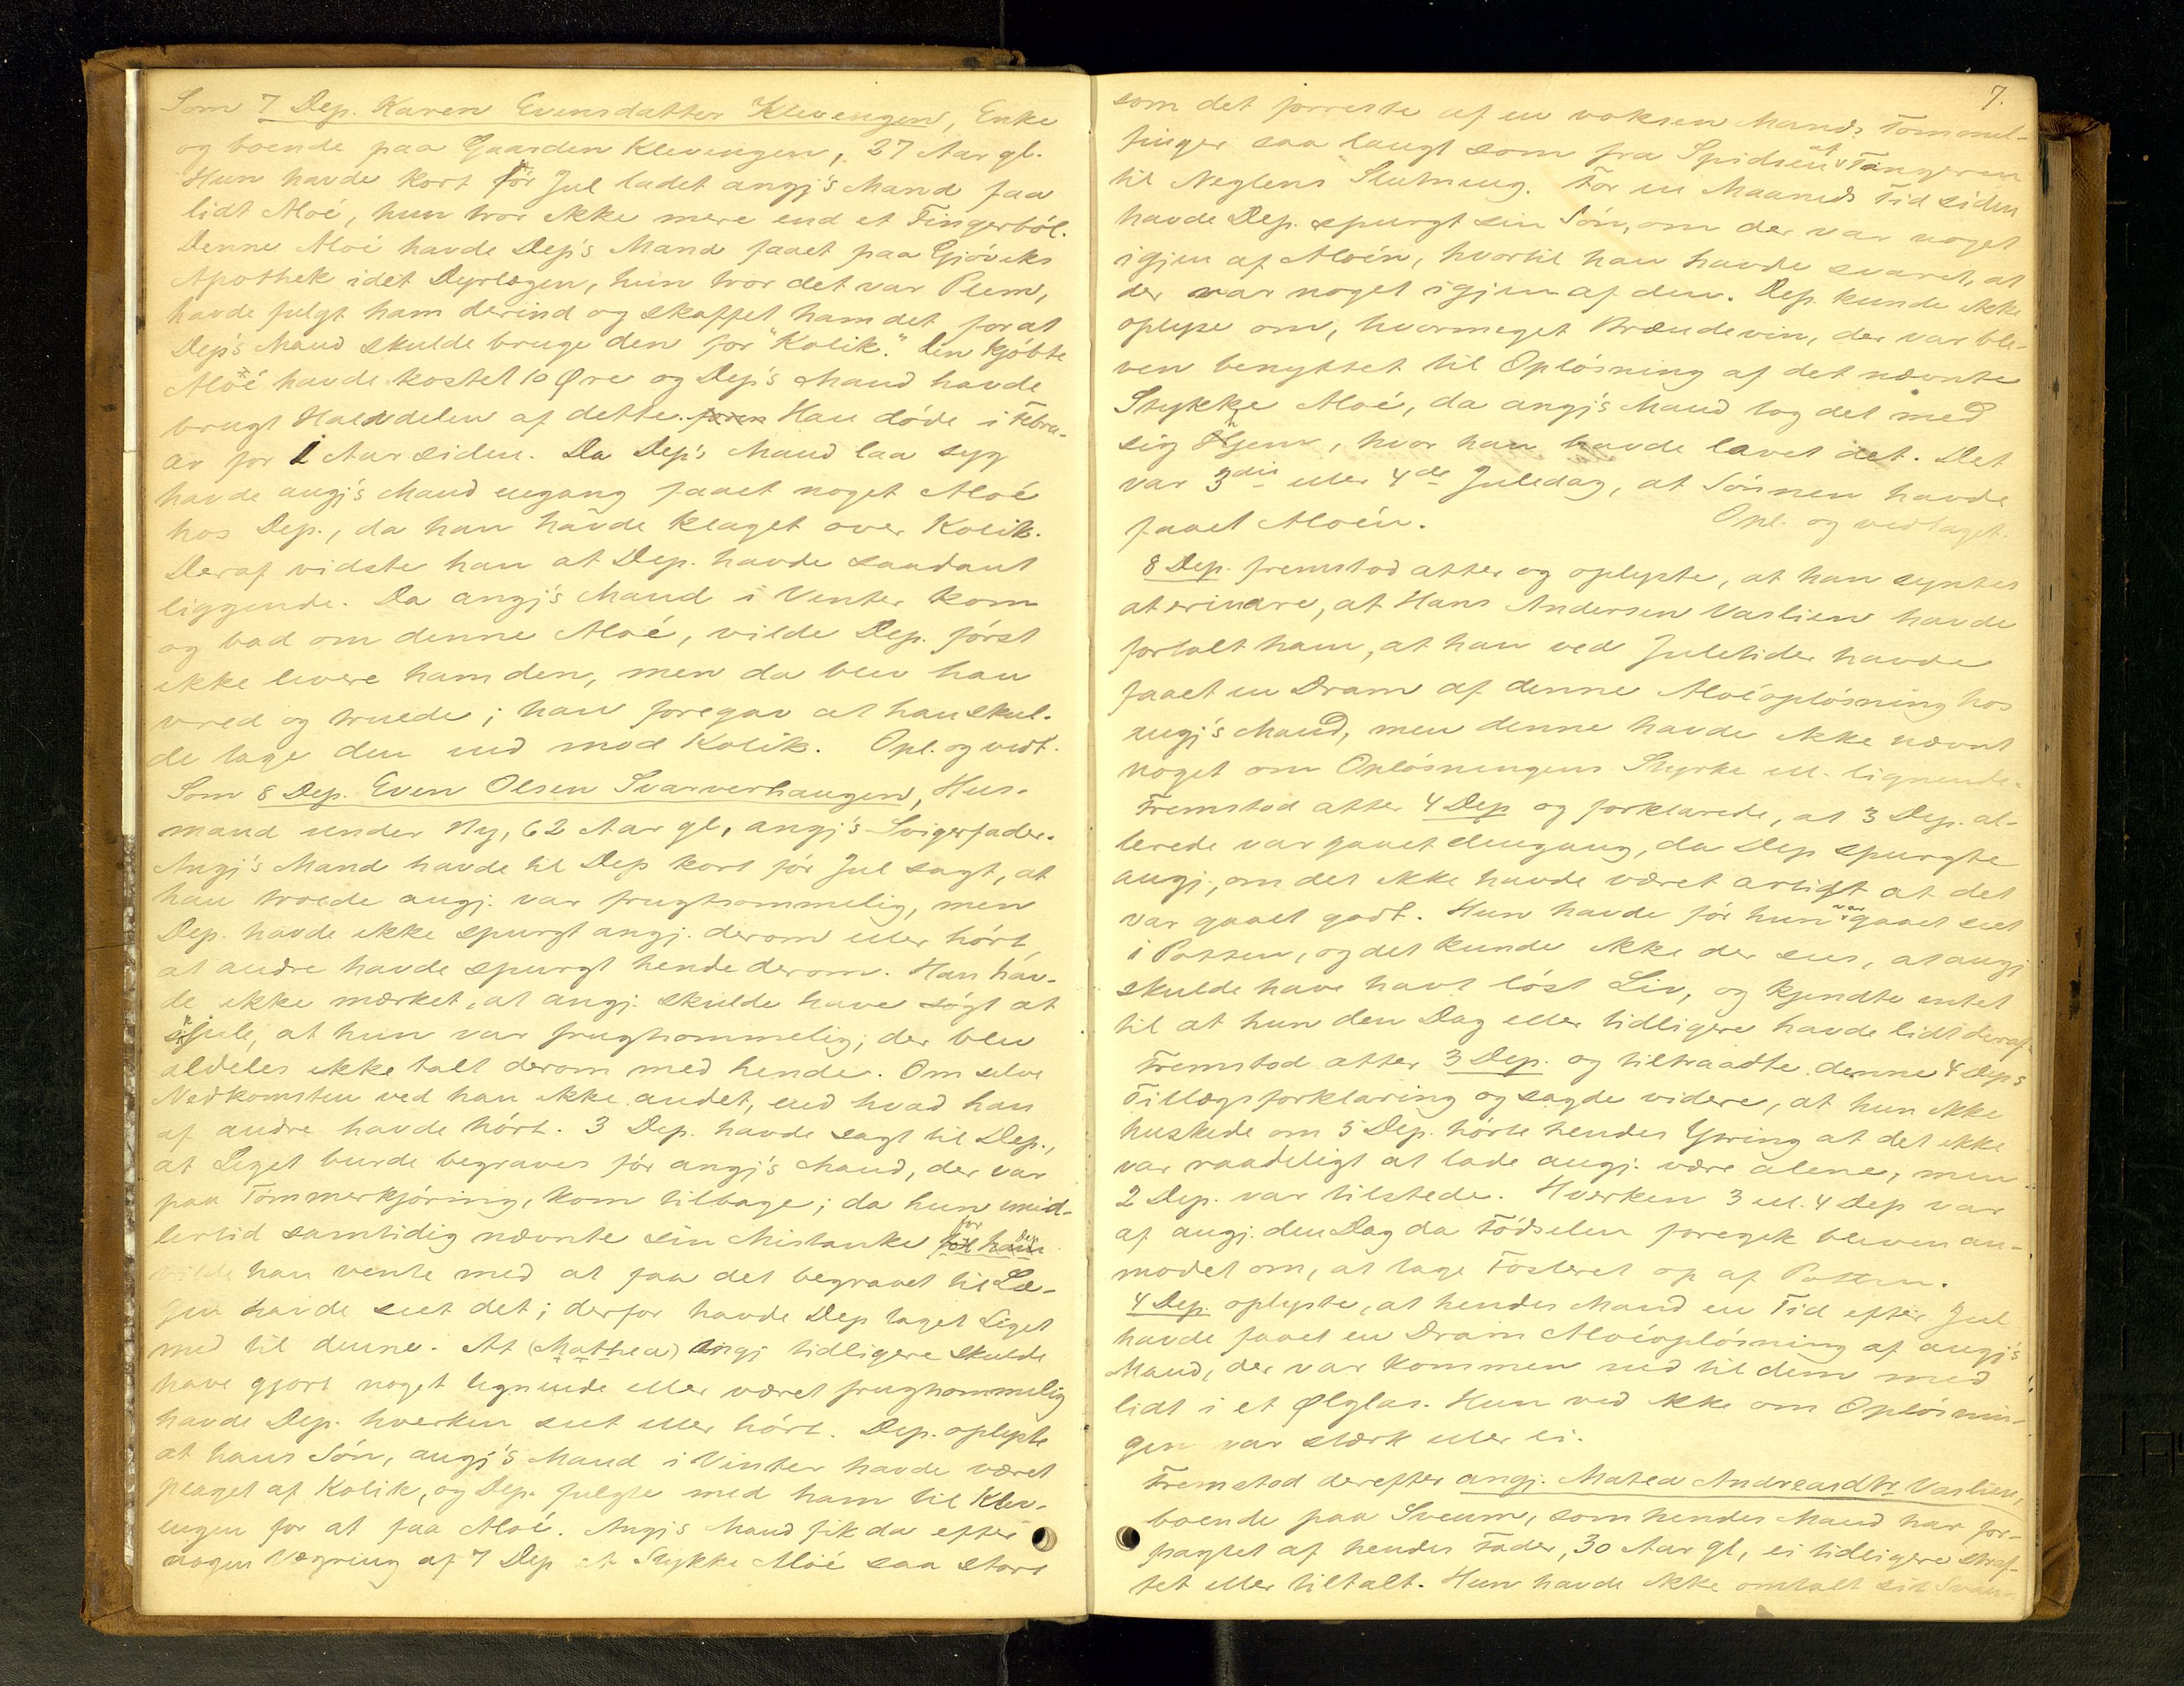 Som 7 Dep. Karen Evensdatter Klevengen, Enke
og boende paa Gaarden Klevengen, 27 Aar gl.
Hun havde kort før Jul ladet angj's Mand faa
lidt Aloé, hun tror ikke mere end et Fingerböl.
Denne Aloé havde Dep's Mand faaet paa Gjöviks
Apothek idet Dyrlægen, hun tror det var Plem,
havde fulgt ham derind og skaffet ham det for at
Dep's Mand skulde bruge den for "Kolik." Den kjöbte
Aloé havde kostet 10 Øre og Dep's Mand havde
brugt Halvdelen af dette. Han döde i Febru-
ar for 1 Aar siden. Da Dep's Mand laa syg
havde angj's Mand engang faaet noget Aloé
hos Dep., da han havde klaget over Kolik.
Deraf vidste han at Dep. havde saadant
liggende. Da angj's Mand i Vinter kom
og bad om denne Aloé, vilde Dep. först
ikke levere ham den, men da blev han
vred og truede; han foregav at han skul-
de tage den ind mod Kolik. Opl. og vedt.
Som 8 Dep. Even Olsen Svarverhaugen, Hus-
mand under Ny, 62 Aar gl, angj's Svigerfader.
Angj's Mand havde til Dep kort för Jul sagt, at
han troede angj. var frugtsommelig, men
Dep. havde ikke spurgt angj. derom eller hört
at andre havde spurgt hende derom. Han hav-
de ikke mærket, at angj. skulde have sögt at
skjule, at hun var frugtsommelig; der blev
aldeles ikke talt derom med hende. Om selve
Nedkomsten ved han ikke andet, end hvad han
af andre havde hört. 3 Dep. havde sagt til Dep.,
at Liget burde begraves för angj's Mand, der var
paa Tömmerkjöring, kom tilbage; da hun imid-
lertid samtidig nævnte sin Mistanke for Dep
vilde han vente med at faa det begravet til Læ-
gen havde seet det; derfor havde Dep taget Liget
med til denne. At (Mathea) angj tidligere skulde
have gjort noget lignende eller været frugtsommelig
havde Dep. hverken seet eller hört. Dep. oplyste
at hans Sön, angj's Mand i Vinter havde været
plaget af Kolik, og Dep. fulgte med ham til Klev-
engen for at faa Aloé. Angj's Mand fik da efter
nogen Vægring af 7 Dep et Stykke Aloé saa stort
7.
som det forreste af en voksen Mands Tommel-
finger saa langt som fra Spidsen af Fingeren
til Neglens Slutning. For en Maaneds Tid siden
havde Dep. spurgt sin Sön, om der var noget
igjen af Aloén, hvortil han havde svaret, at
der var noget igjen af den. Dep. kunde ikke
oplyse om, hvormeget Brændevin, der var ble-
ven benyttet til Oplösning af det nævnte
Stykke Aloé, da angj's Mand tog det med
sig hjem, hvor han havde lavet det. Det
var 3die eller 4de Juledag, at Sönnen havde
faaet Aloén. Opl. og vedtaget.
8 Dep. fremstod atter og oplyste, at han syntes
at erindre, at Hans Andersen Varlien havde
fortalt ham, at han ved Juletider havde
faaet en Dram af denne Aloéoplösning hos
angj's Mand, men denne havde ikke nævnt
noget om Oplösningens Styrke ell. lignende.
Fremstod atter 4 Dep og forklarede, at 3 Dep. al-
lerede var gaaet dengang, da Dep spurgte
angj., om det ikke havde været artigt at det
var gaaet godt. Hun havde för hun var gaaet seet
i Potten, og det kunde ikke der sees, at angj
skulde have havt löst Liv, og kjendte intet
til at hun den Dag eller tidligere havde lidt deraf.
Fremstod atter 3 Dep. og tiltraadte denne 4 Deps
Tillægsforklaring og sagde videre, at hun ikke
huskede om 5 Dep. hörte hendes Ytring at det ikke
var raadeligt at lade angj. være alene, men
2 Dep. var tilstede. Hverken 3 ell. 4 Dep var
af angj. den Dag da Födselen foregik bleven an-
modet om, at tage Fosteret op af Potten.
4 Dep. oplyste, at hendes Mand en Tid efter Jul
havde faaet en Dram Aloéoplösning af angj's
Mand, der var kommen ned til dem med
lidt i et Ølglas. Hun ved ikke om Oplösnin-
gen var stærk eller ei.
Fremstod derefter angj. Matea Andreasdtr Varlien,
boende paa Sveum, som hendes Mand har for-
pagtet af hendes Fader, 30 Aar gl, ei tidligere straf-
fet eller tiltalt. Hun havde ikke omtalt sit Svan-